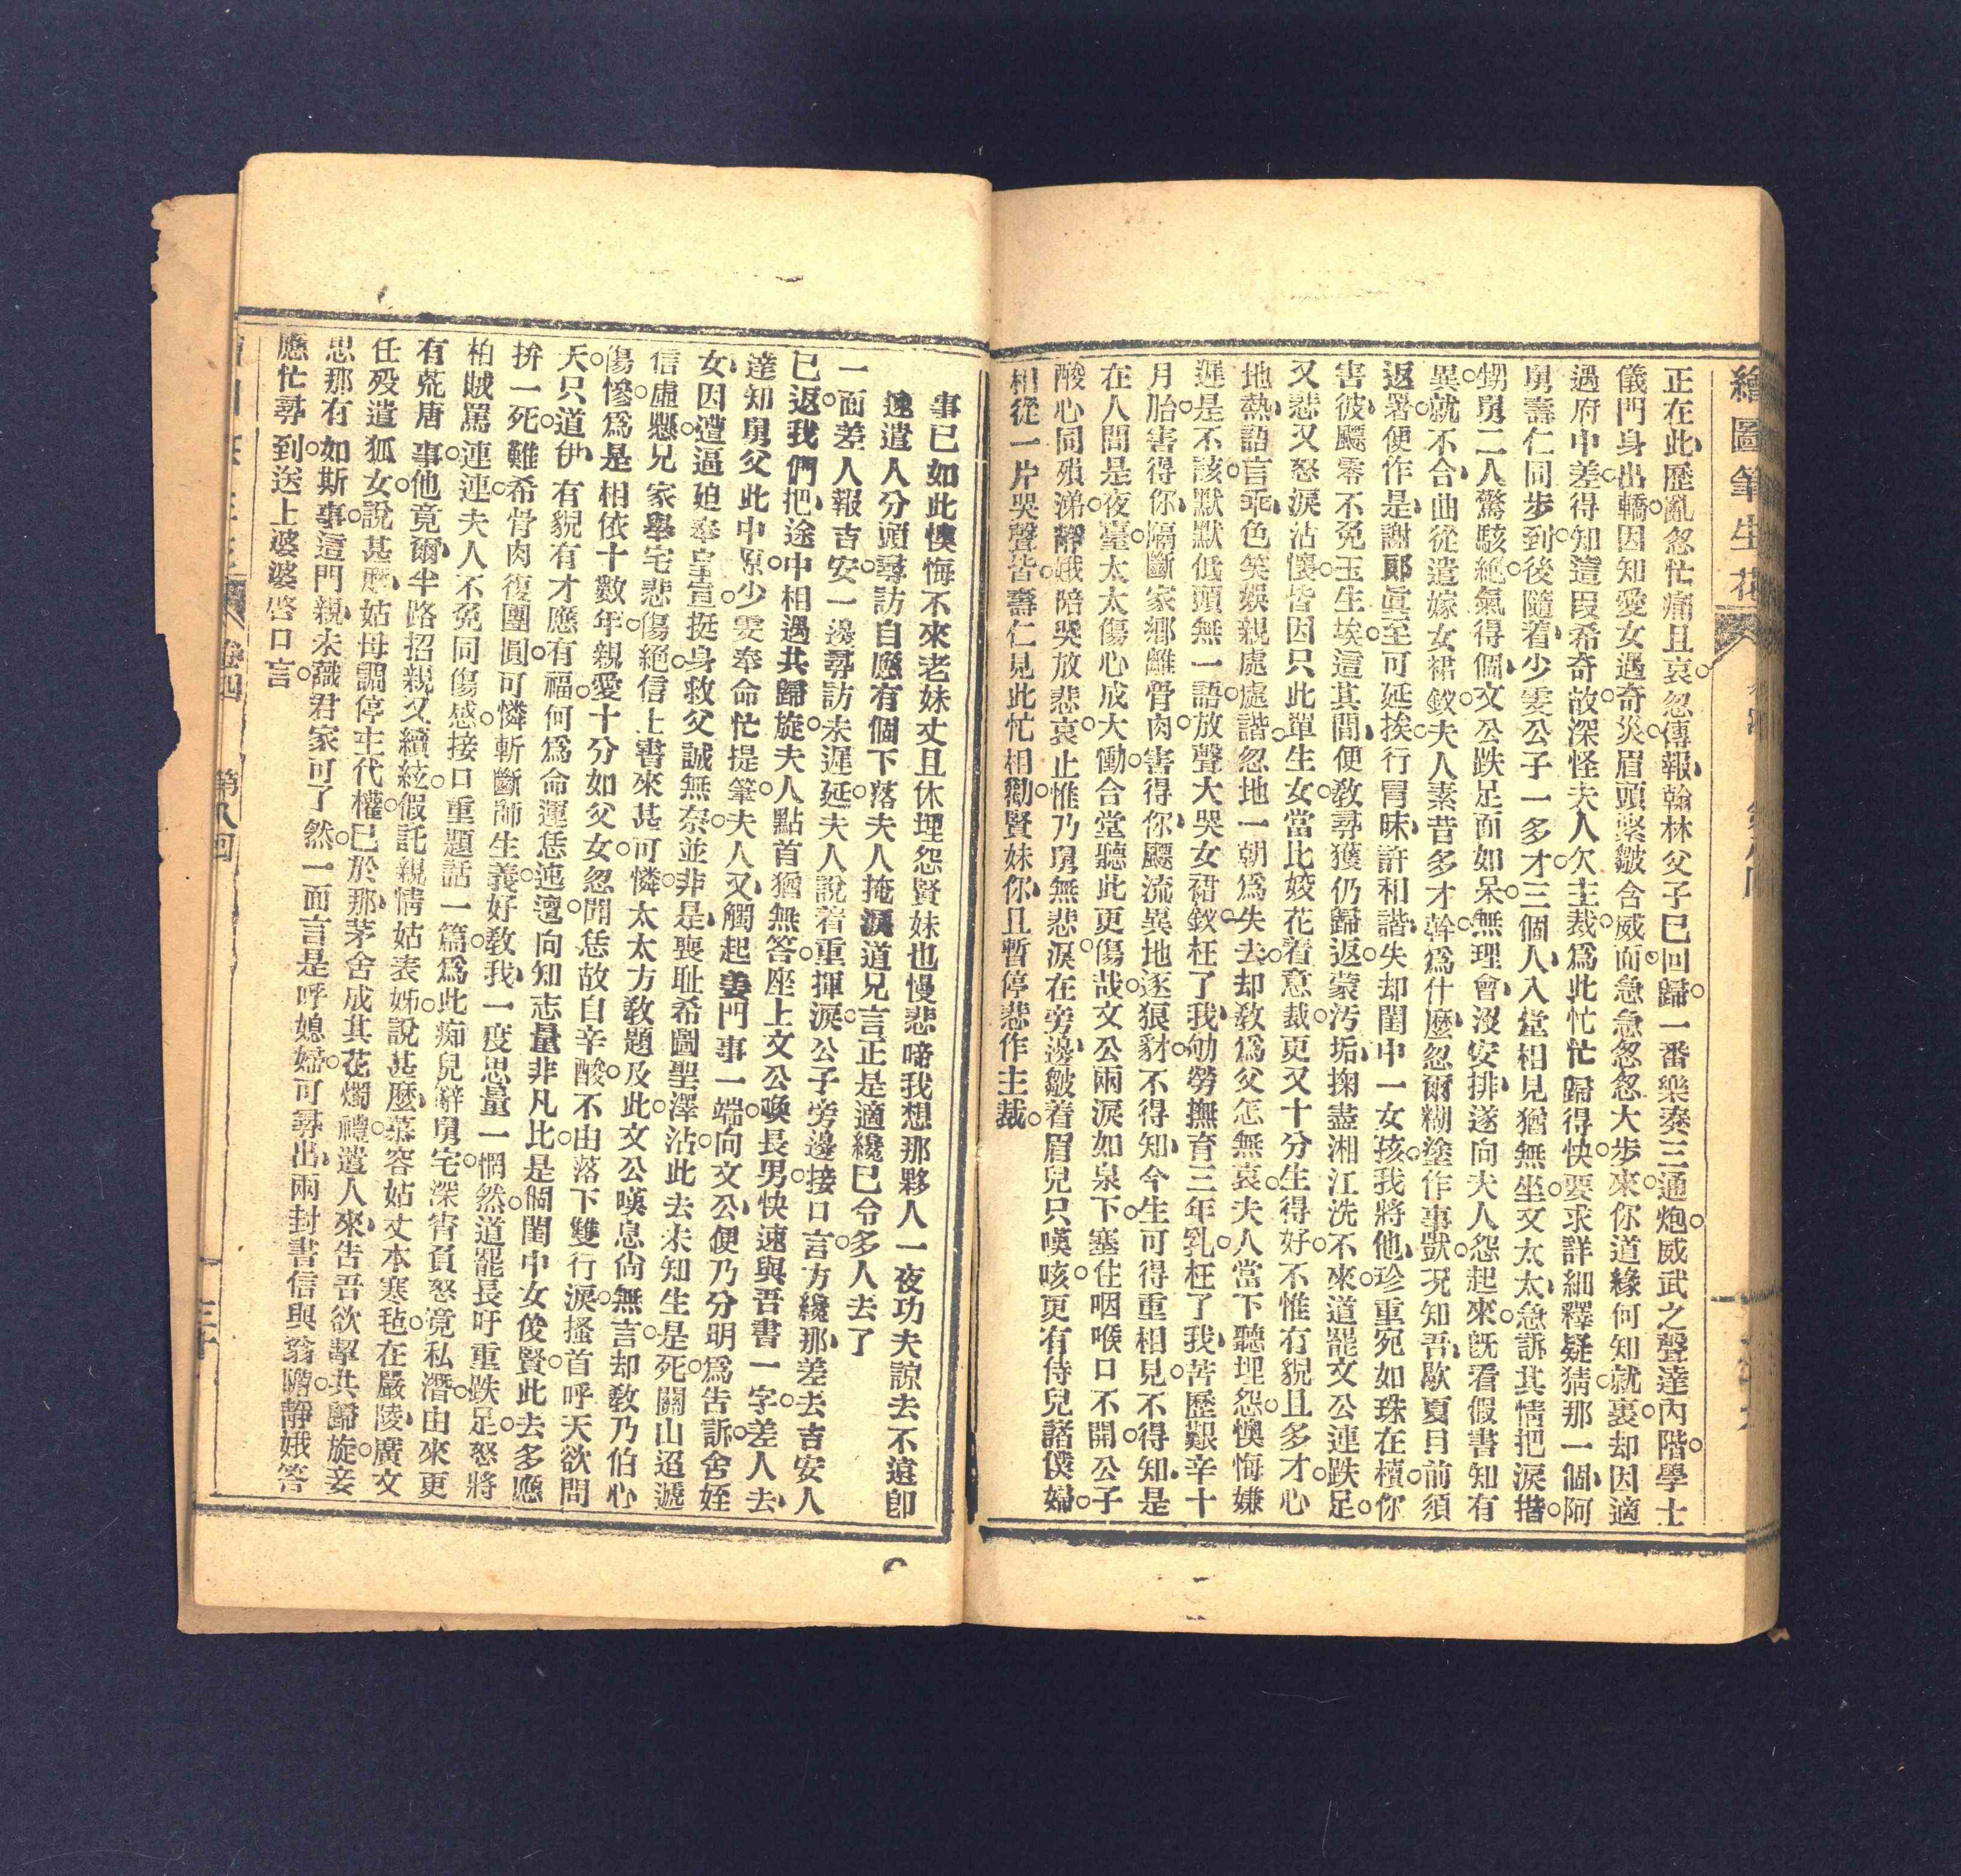 繪圖筆生花
正在此、歷亂忽忙痛且哀。忽傳報、翰林父子已回歸。一番樂奏三通炮。威武之聲達內階。學士
儀門身出轎。因知愛女遇奇災。眉頭緊皺含威而急急忽忽大步來。你道緣何知就裏。却因適
過府中差、得知這段希奇故。深怪夫人欠主裁。爲此忙忙歸得快。要求詳細釋疑猜。那一個、阿
舅壽仁同步到。後隨着、少雯公子一多才。三個人、入堂相見猶無坐。文太太、急訴其情把淚揩。
甥舅二人驚駭絕。氣得個、文公跌足面如呆。無理會、沒安排、遂向夫人怨起來。旣看假書知有
異。就不合、曲從遣嫁女裙釵。夫人素昔多才幹。爲什麼、忽爾糊塗作事獃。况知吾、歇夏目前須
返署。便作是、謝郞眞至可延挨。行冒昧、許和諧、失却閨中一女孩。我將他、珍重宛如珠在櫝。你
害彼、飄零不免玉生埃。這其間、便敎尋獲仍歸返。蒙汚垢、掬盡湘江洗不來。道罷文公連跌足。
又悲又怒淚沾懷。皆因只此單生女。當比姣花着意裁。更又十分生得好。不惟有貌且多才。心
地熱、語言乖。色笑娛親處處諧。忽地一朝爲失去。却敎爲父怎無哀。夫人當下聽埋怨。懊悔嫌
遲是不該。默默低頭無一語。放聲大哭女裙釵。枉了我、劬勞撫育三年乳。枉了我、苦歷艱辛十
月胎。害得你、隔斷家鄕離骨肉。害得你、飄流異地逐狼豺。不得知、今生可得重相見。不得知、是
在人間是夜臺。太太傷心成大慟。合堂聽此更傷哉。文公兩淚如泉下。塞住咽喉口不開。公子
酸心同殞涕。靜娥陪哭放悲哀。止惟乃舅無悲淚。在旁邊、皺着眉兒只嘆咳。更有侍兒諸僕婦。
相從一片哭聲皆。壽仁見此忙相勸。賢妹你、且暫停悲作主裁。
事已如此懊悔不來老妹丈且休埋怨賢妹也慢悲啼我想那夥人一夜功夫諒去不遠卽
速遣人分頭尋訪自應有個下落夫人掩淚道兄言正是適纔已令多人去了
一面差人報吉安。一邊尋訪未遲延。夫人說着重揮淚。公子旁邊接口言。方纔那、差去吉安人
已返。我們把、途中相遇共歸旋。夫人點首猶無答。座上文公喚長男。快速與吾書一字。差人去、
達知舅父此中原。少雯奉命忙提筆。夫人又、觸起姜門事一端。向文公、便乃分明爲告訴。舍姪
女、因遭逼廹奉皇宣。挺身救父誠無奈。並非是、喪耻希圖聖澤沾。此去未知生是死。關山迢遞
信虛懸。兄家舉宅悲傷絕。信上書來甚可憐。太太方敎題及此。文公嘆息尙無言。却敎乃伯心
傷慘。爲是相依十數年。親愛十分如父女。忽聞恁故自辛酸。不由落下雙行淚。搔首呼天欲問
天。只道伊、有貌有才應有福。何爲命運恁迍邅。向知志量非凡比。是個閨中女俊賢。此去多應
拚一死。難希骨肉復團圓。可憐斬斷師生義。好敎我、一度思量一惘然。道罷長吁重跌足。怒將
柏賊駡連連。夫人不免同傷感。接口重題話一篇。爲此痴兒辭舅宅。深宵負怒竟私潛。由來更
有荒唐事。他竟爾、半路招親又續絃。假託親情姑表姊。說甚麼、慕容姑丈本寒氊。在嚴陵、廣文
任殁遺狐女。說甚麽、姑母調停主代權。已於那、茅舍成其花燭禮。遣人來、告吾欲挈共歸旋。妾
思那有如斯事。這門親、未識君家可了然。一面言、是呼媳婦可尋出、兩封書信與翁瞻。靜娥答
應忙尋到。送上婆婆啓口言。
卷四
第八回